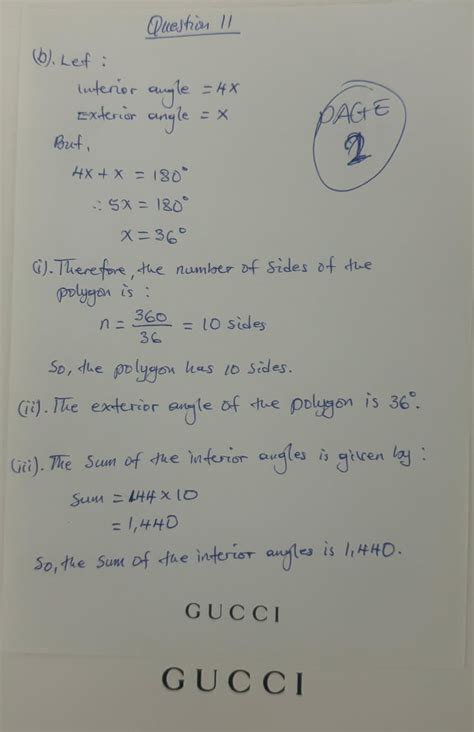 Question 11
(b). Let :
Interior angle = 4x
Exterior angle = x
But,
4x + x = 180°
∴ 5x = 180°
x = 36°
PAGE
2
(i). Therefore, the number of sides of the
polygon is :
n = 360/36 = 10 sides
So, the polygon has 10 sides.
(ii). The exterior angle of the polygon is 36°.
(iii). The sum of the interior angles is given by :
Sum = 144 × 10
= 1,440
So, the sum of the interior angles is 1,440.
GUCCI
GUCCI